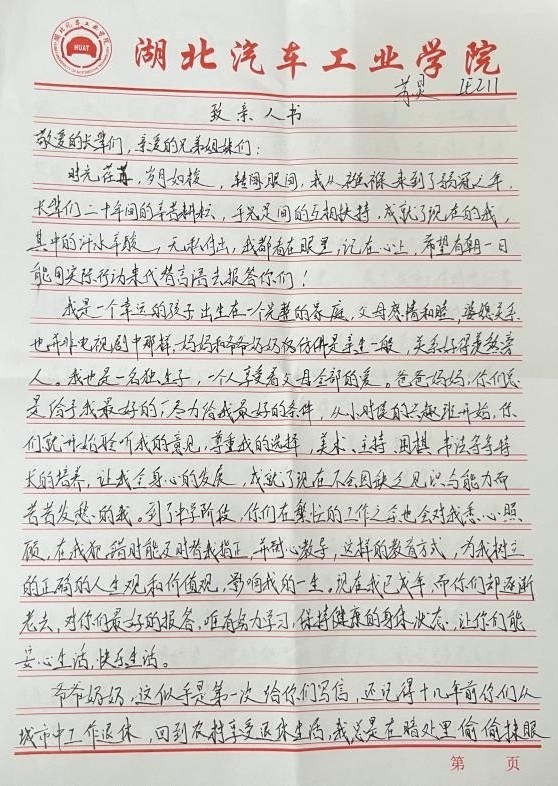 HUAT
湖北汽车工业学院
致亲人书
敬爱的长辈们，亲爱的兄弟姐妹们：
时光荏苒，岁月如梭，转间眼间，我从襁褓来到了弱冠之年，
长辈们二十年间的辛苦耕耘，手足之间的互相扶持，成就了现在的我，
其中的汗水辛酸，无私付出，我都看在眼里，记在心上，希望有朝一日
能用实际行动来代替言语去报答你们！
我是一个幸运的孩子出生在一个完整的家庭，父母感情和睦，婆媳关系
也并非电视剧中那样，妈妈和爷爷奶奶仿佛是亲生一般，关系好得羡煞旁
人。我也是一名独生子，一个人享受着父母全部的爱。爸爸妈妈，你们总
是给予我最好的，尽力给我最好的条件，从小时候的兴趣班开始，你
们就开始聆听我的意见，尊重我的选择，美术、主持、围棋、书法等等特
长的培养，让我全身心的发展，成就了现在不会因缺乏见识与能力而
苦苦发愁的我。到了中学阶段，你们在繁忙的工作之余也会对我悉心照
顾，在我犯错时能及时替我指正，并耐心教导，这样的教育方式，为我树立
的正确的人生观和价值观，影响我的一生。现在我已成年，而你们却逐渐
老去，对你们最好的报答，唯有努力学习，保持健康的身体状态，让你们能
安心生活，快乐生活。
爷爷奶奶，这似乎是第一次给你们写信，还记得十几年前你们从
城市中工作退休，回到农村享受退休生活，我总是在暗处里偷偷抹眼
第 页